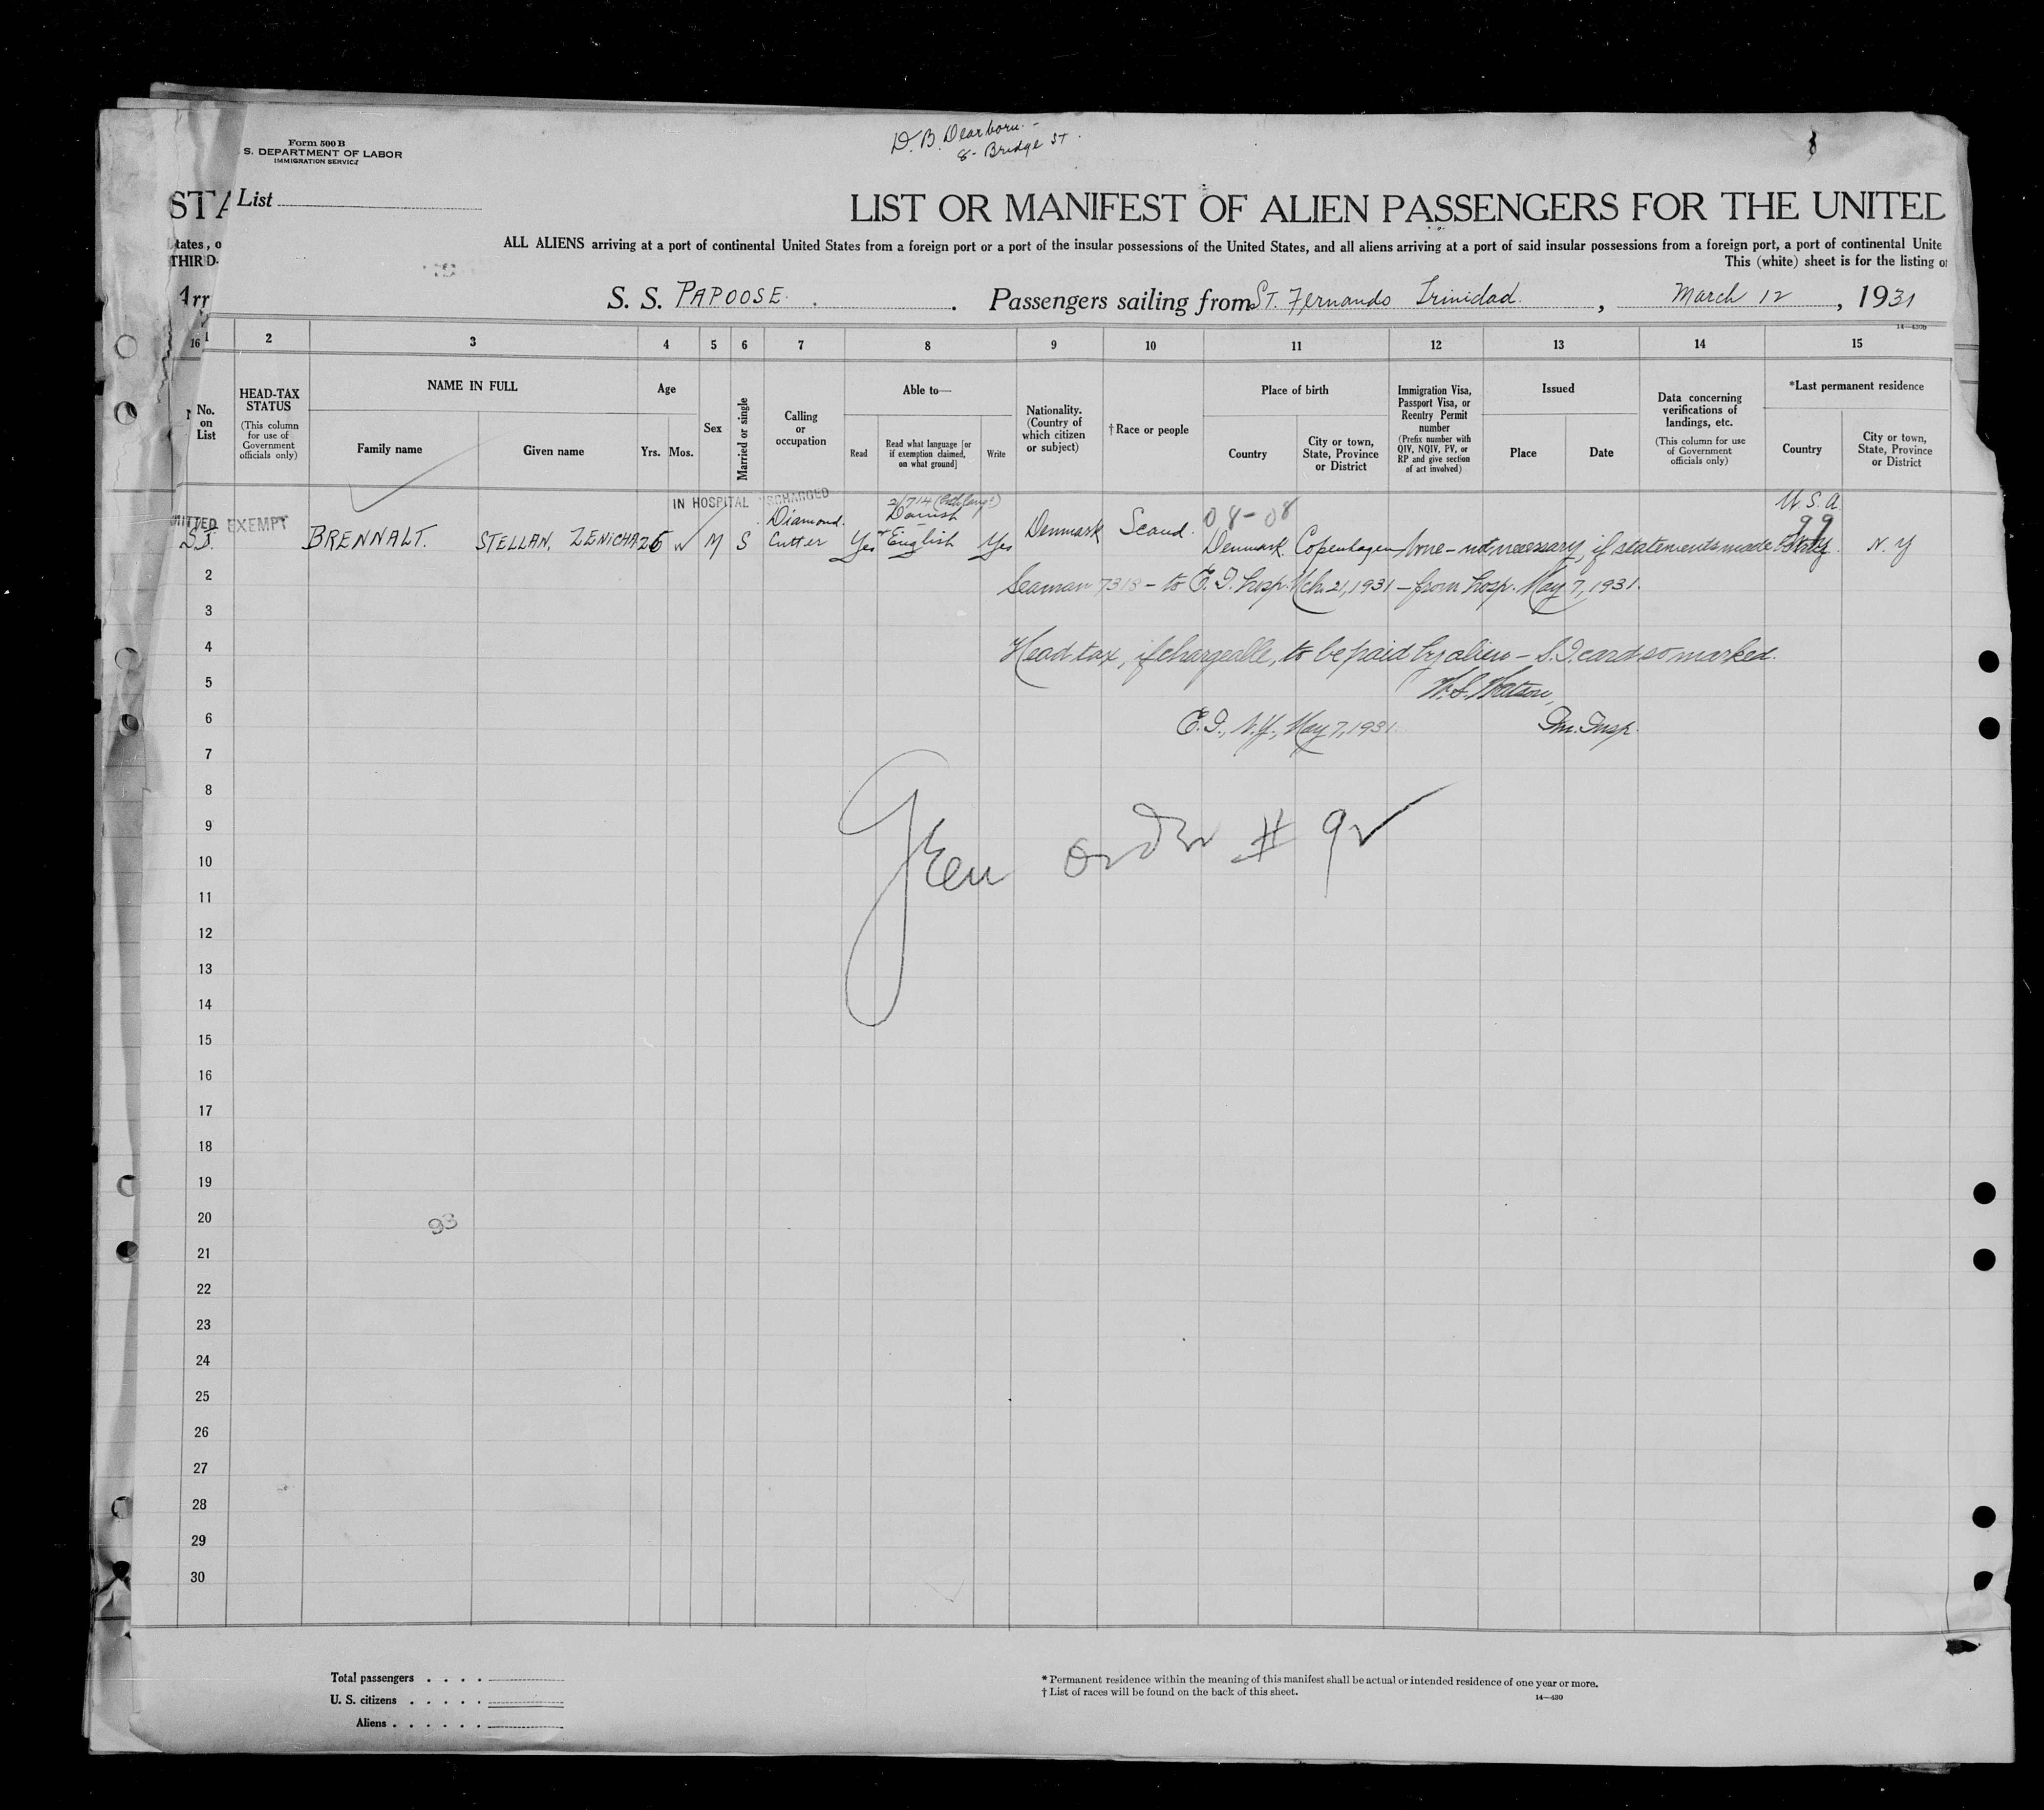 D. B. Dearborn. -
8 - Bridge ST.
Form 500 B
S. DEPARTMENT OF LABOR
IMMIGRATION SERVICE
STA
List
LIST OR MANIFEST OF ALIEN PASSENGERS FOR THE UNITED
tates, o
THIRD-
ALL ALIENS arriving at a port of continental United States from a foreign port or a port of the insular possessions of the United States, and all aliens arriving at a port of said insular possessions from a foreign port, a port of continental Unite
This (white) sheet is for the listing of
Arr
S. S. PAPOOSE. Passengers sailing from ST. Fernando Trinidad. , March 12 , 1931
14—430B
16 1 2 3 4 5 6 7 8 9 10 11 12 13 14 15
No. on List
HEAD-TAX STATUS
(This column for use of Government officials only)
NAME IN FULL
Family name
Given name
Age
Yrs. Mos.
Sex
Married or single
Calling or occupation
Able to—
Read
Read what language [or if exemption claimed, on what ground]
Write
Nationality. (Country of which citizen or subject)
†Race or people
Place of birth
Country
City or town, State, Province or District
Immigration Visa, Passport Visa, or Reentry Permit number
(Prefix number with QIV, NQIV, PV, or RP and give section of act involved)
Issued
Place
Date
Data concerning verifications of landings, etc.
(This column for use of Government officials only)
*Last permanent residence
Country
City or town, State, Province or District
IN HOSPITAL DISCHARGED
U.S.A.
99
08-08
MITTED EXEMPT
S.I. BRENNALT. STELLAN, ZENICHA 26 M S Diamond Cutter Yes Danish English Yes Denmark Scand. Denmark Copenhagen None - not necessary, if statements made N.Y
2 Seaman 7318 - to E.I. hosp. Mch. 21, 1931 - from hosp. May 7, 1931.
3
4 Head tax, if chargeable, to be paid by alien - S.I. card so marked.
5 W.S. Watson,
6 E.I., N.Y., May 7, 1931 Im. Insp.
7
8
9
Gen order # 92
10
11
12
13
14
15
16
17
18
19
20
93
21
22
23
24
25
26
27
28
29
30
Total passengers . . . .
U. S. citizens . . . . .
Aliens . . . . . .
* Permanent residence within the meaning of this manifest shall be actual or intended residence of one year or more.
† List of races will be found on the back of this sheet.
14—430